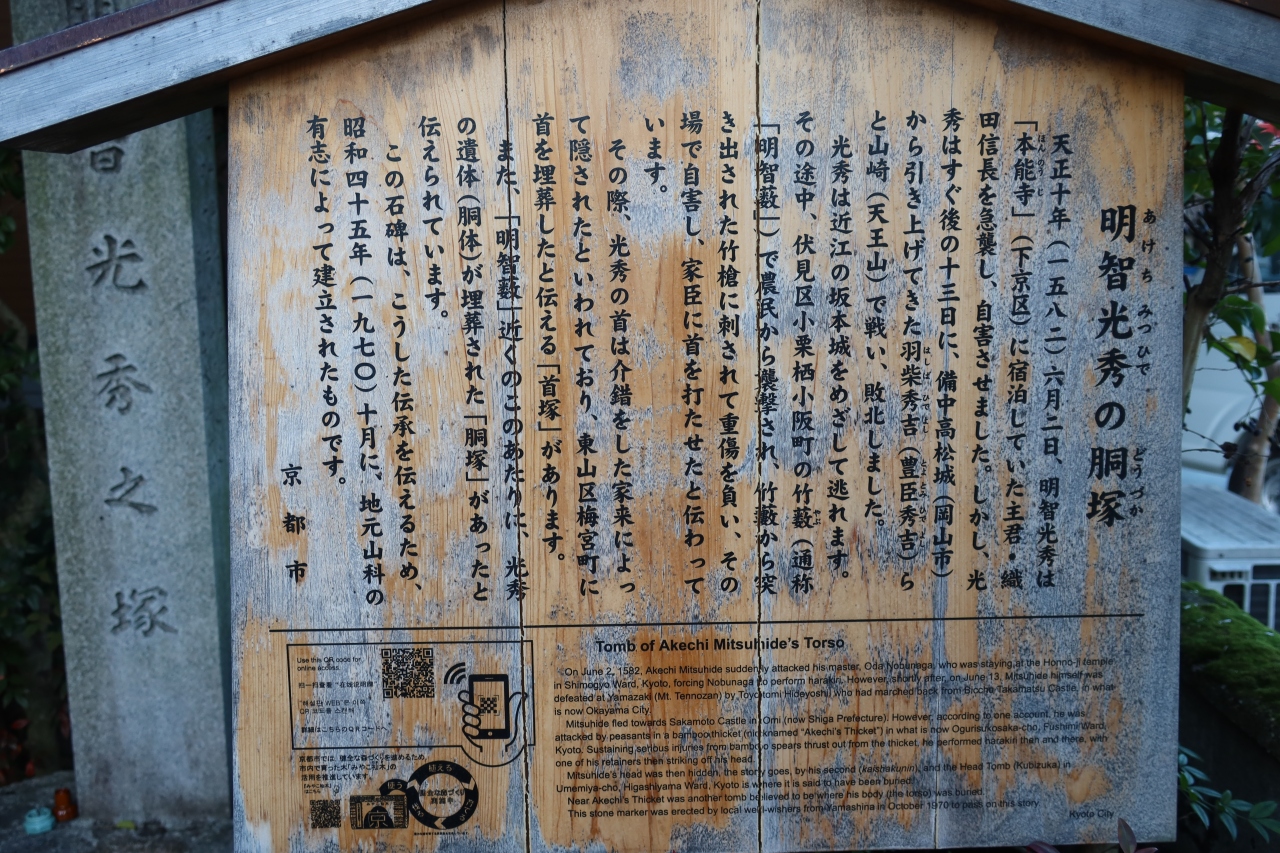 明智光秀の胴塚
あけちみつひで どうづか
天正十年（一五八二）六月二日、明智光秀は
「本能寺」（下京区）に宿泊していた主君・織
ほんのうじ
田信長を急襲し、自害させました。しかし、光
秀はすぐ後の十三日に、備中高松城（岡山市）
から引き上げてきた羽柴秀吉（豊臣秀吉）ら
はしばひでよし とよとみひでよし
と山崎（天王山）で戦い、敗北しました。
光秀は近江の坂本城をめざして逃れます。
その途中、伏見区小栗栖小阪町の竹藪（通称
やぶ
「明智藪」）で農民から襲撃され、竹藪から突
き出された竹槍に刺されて重傷を負い、その
場で自害し、家臣に首を打たせたと伝わって
います。
その際、光秀の首は介錯をした家来によっ
て隠されたといわれており、東山区梅宮町に
首を埋葬したと伝える「首塚」があります。
また、「明智藪」近くのこのあたりに、光秀
の遺体（胴体）が埋葬された「胴塚」があったと
伝えられています。
この石碑は、こうした伝承を伝えるため、
昭和四十五年（一九七〇）十月に、地元山科の
有志によって建立されたものです。
京都市
Tomb of Akechi Mitsuhide's Torso
On June 2, 1582, Akechi Mitsuhide suddenly attacked his master, Oda Nobunaga, who was staying at the Honno-ji temple
in Shimogyo Ward, Kyoto, forcing Nobunaga to perform harakiri. However, shortly after, on June 13, Mitsuhide himself was
defeated at Yamazaki (Mt. Tennozan) by Toyotomi Hideyoshi, who had marched back from Bicchu Takamatsu Castle, in what
is now Okayama City.
Mitsuhide fled towards Sakamoto Castle in Omi (now Shiga Prefecture). However, according to one account, he was
attacked by peasants in a bamboo thicket (nicknamed "Akechi's Thicket") in what is now Ogurisukosaka-cho, Fushimi Ward,
Kyoto. Sustaining serious injuries from bamboo spears thrust out from the thicket, he performed harakiri then and there, with
one of his retainers then striking off his head.
Mitsuhide's head was then hidden, the story goes, by his second (kaishakunin), and the Head Tomb (Kubizuka) in
Umemiya-cho, Higashiyama Ward, Kyoto is where it is said to have been buried.
Near Akechi's Thicket was another tomb believed to be where his body (the torso) was buried.
This stone marker was erected by local well-wishers from Yamashina in October 1970 to pass on this story.
Kyoto City
Use this QR code for
online access.
扫一扫查看 "在线说明牌"
"해설판 WEB"은 이쪽
QR 코드를 스캔해
詳細はこちらのQRコードへ
京都市では、健全な森づくりを進めるため、
市内で育った木「みやこ杣木」の
活用を推進しています。
智光秀之塚